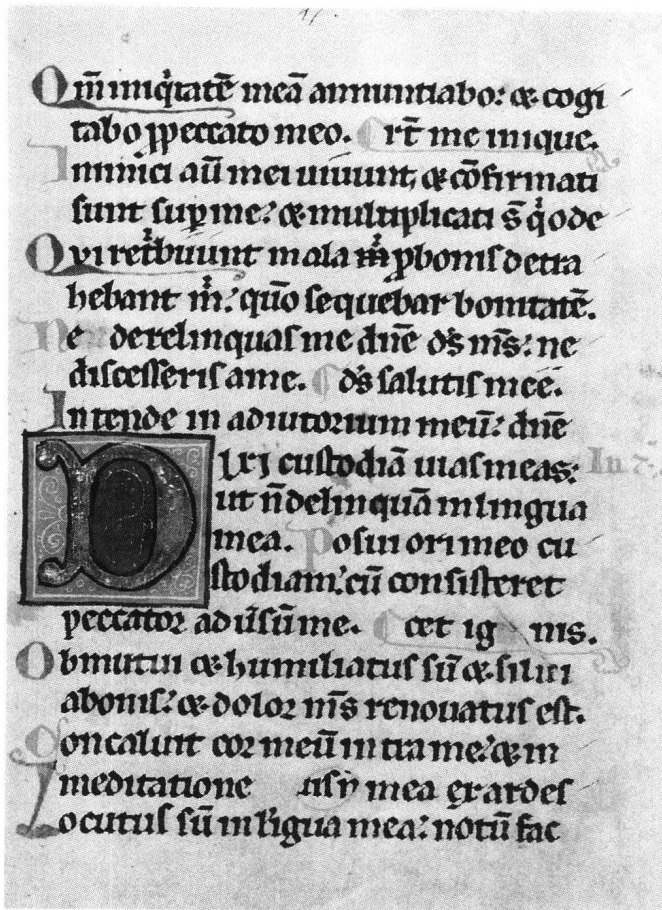 17.
Om̄ iniq̇tatē meā annuntiabo: & cogi
tabo ꝓpeccato meo. rt̄ me inique.
Inimici aū mei uiuunt, & cōfirmati
sunt sup̱ me: & multiplicati s̄ q̇ ode
Qui ret̓buunt mala m̓ ꝓ bonis detra
hebant m̓: quō sequebar bonitatē.
Ne derelinquas me dn̄e ds̄ ms̄: ne
discesseris a me. ds̄ salutis mee.
Intende in adiutorium meū: dn̄e
Dixi custodiā uias meas:
ut n̄ delinquā in lingua
mea. Posui ori meo cu
stodiam: cū consisteret
peccator adu̓sū me. cet ig nis.
Obmutui & humiliatus sū & silui
a bonis: & dolor ms̄ renouatus est.
Concaluit cor meū intra me: & in
meditatione mea exardes
Locutus sū in līgua mea: notū fac